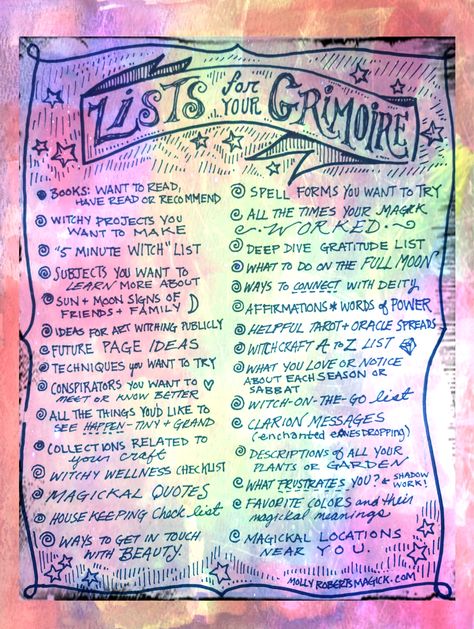 LISTS for YOUR GRIMOIRE
BOOKS: WANT TO READ,
HAVE READ OR RECOMMEND
WITCHY PROJECTS YOU
WANT TO MAKE
"5 MINUTE WITCH" LIST
SUBJECTS YOU WANT TO
LEARN MORE ABOUT
SUN + MOON SIGNS OF
FRIENDS + FAMILY
IDEAS FOR ART WITCHING PUBLICLY
FUTURE PAGE IDEAS
TECHNIQUES YOU WANT TO TRY
CONSPIRATORS YOU WANT TO
MEET OR KNOW BETTER
ALL THE THINGS YOU'D LIKE TO
SEE HAPPEN - TINY + GRAND
COLLECTIONS RELATED TO
your craft
WITCHY WELLNESS CHECKLIST
MAGICKAL QUOTES
HOUSEKEEPING Check list
WAYS TO GET IN TOUCH
WITH BEAUTY.
SPELL FORMS YOU WANT TO TRY
ALL THE TIMES YOUR MAGICK
WORKED
DEEP DIVE GRATITUDE LIST
WHAT TO DO ON THE FULL MOON
WAYS TO CONNECT WITH DEITY
AFFIRMATIONS * WORDS OF POWER
HELPFUL TAROT + ORACLE SPREADS
WITCHCRAFT A TO Z LIST
WHAT YOU LOVE OR NOTICE
ABOUT EACH SEASON OR
SABBAT
WITCH-ON-THE-GO list
CLARION MESSAGES
(enchanted eavesdropping)
DESCRIPTIONS of ALL YOUR
PLANTS or GARDEN
WHAT FRUSTRATES YOU? * SHADOW
WORK!
FAVORITE COLORS and their
magickal meanings
MAGICKAL LOCATIONS
NEAR YOU.
MOLLYROBERTSMAGICK.COM